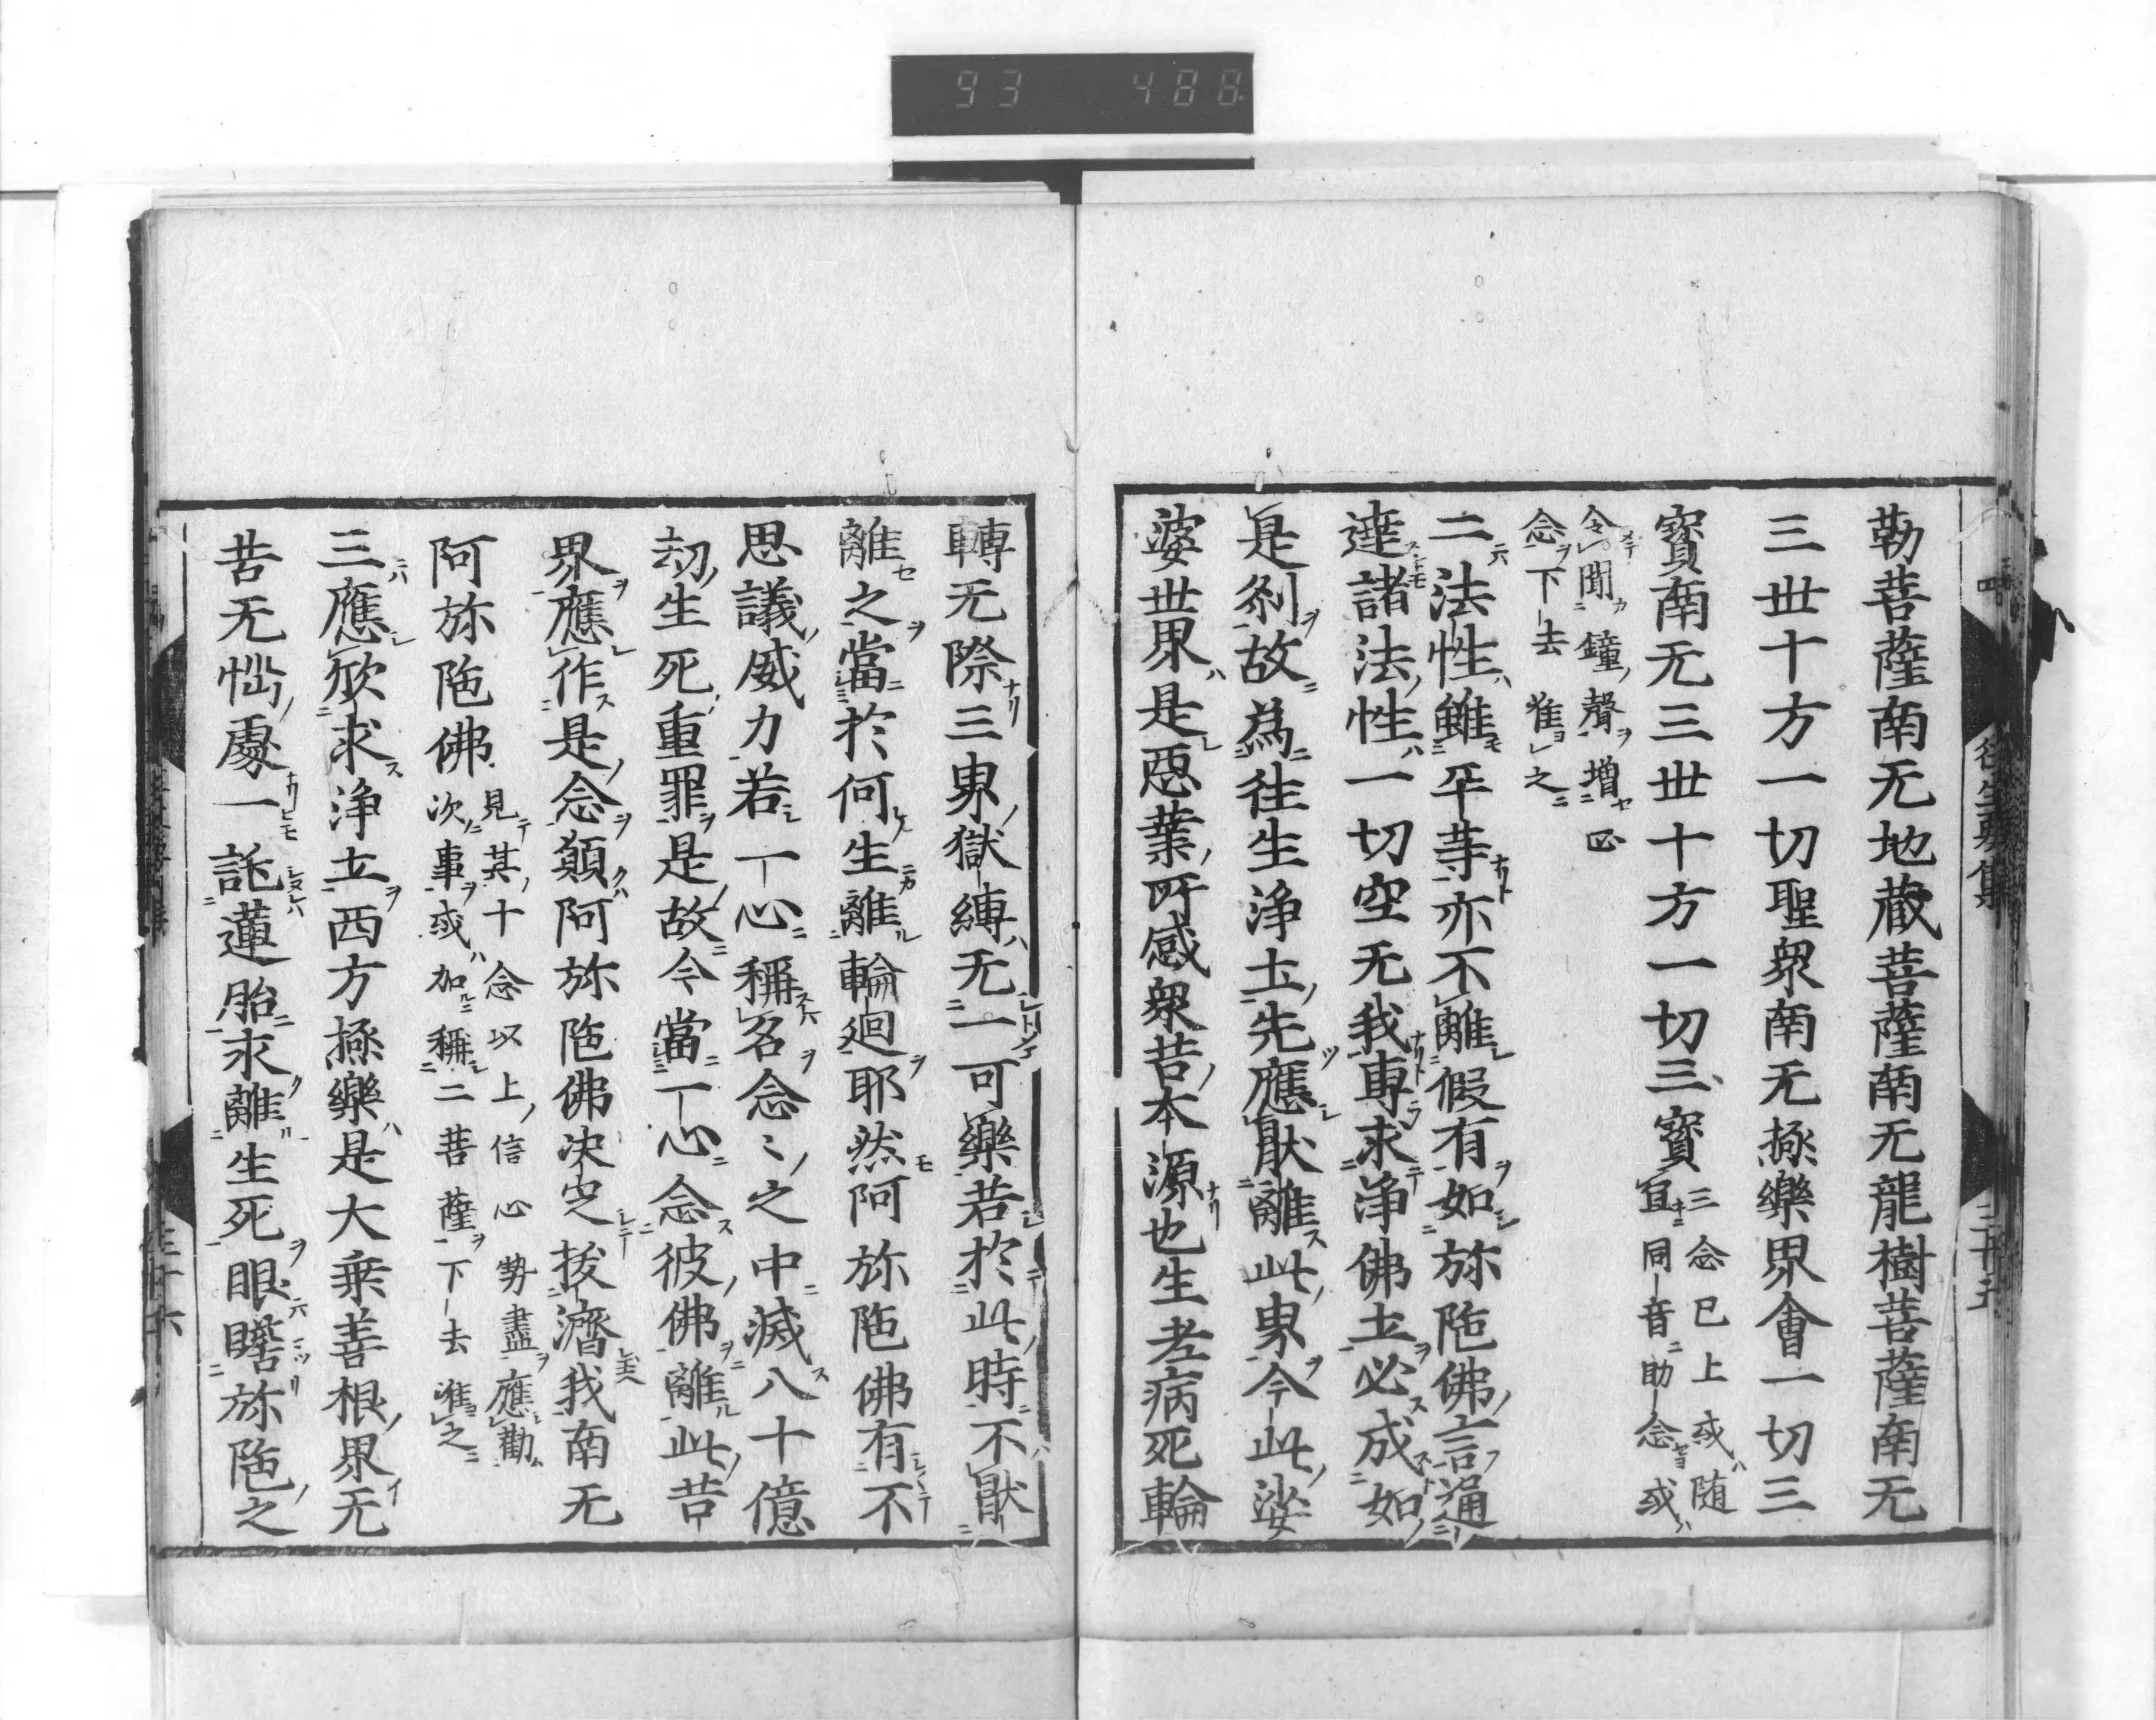 93 488
勒菩薩南无地蔵菩薩南无龍樹菩薩南无
三世十方一切聖衆南无極樂界會一切三
寳南无三世十方一切三寳三念已上或随
冝同音助念或
令聞鐘聲增正
念下去准之
二法性雖平等亦不離假有如弥陁佛言通
達諸法性一切空无我專求浄佛土必成如
是刹故為往生浄土先應猒離此界今此娑
婆世界是惡業所感衆苦本源也生老病死輪
轉无際三界獄縛无一可樂若於此時不猒
離之當於何生離輪廻耶然阿弥陁佛有不
思議威力若一心稱名念〻之中滅八十億
劫生死重罪是故今當一心念彼佛離此苦
界應作是念願阿弥陁佛决定拔濟我南无
阿弥陁佛見其十念以上信心勢盡應勸
次事或加稱二菩薩下去准之
三應欣求浄土西方極樂是大乗善根界无
苦无惱處一託蓮胎永離生死眼瞻弥陁之